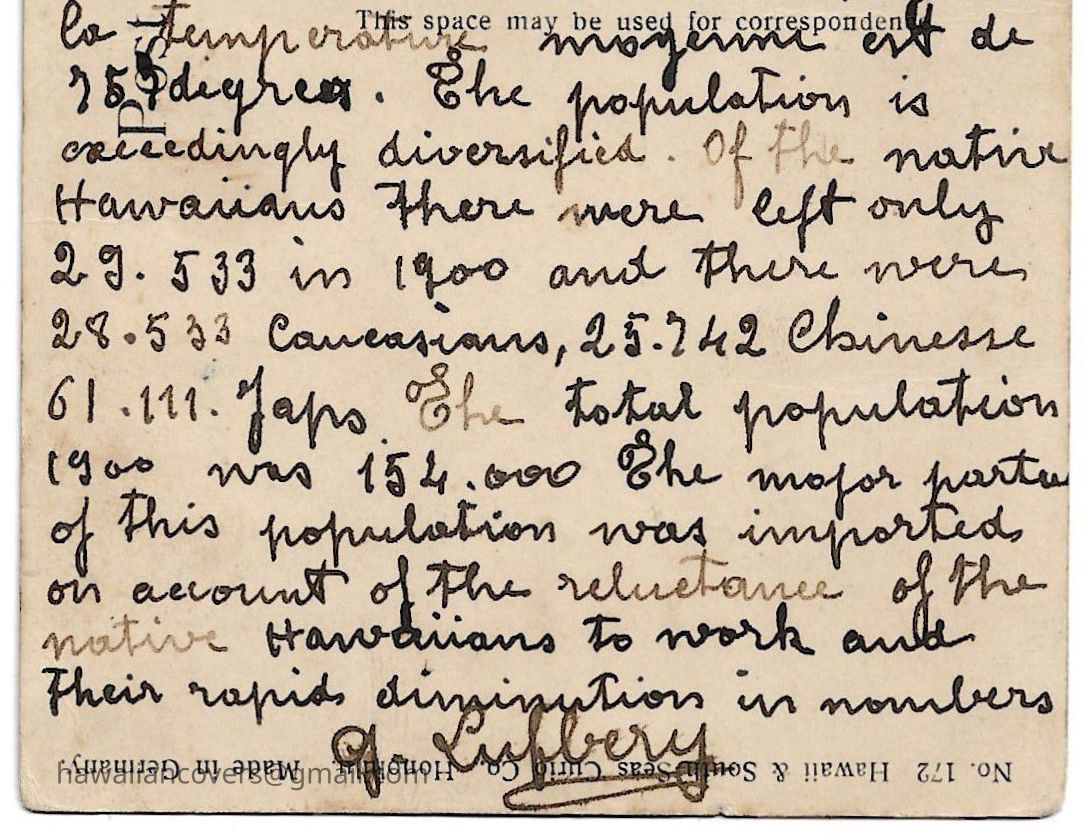 This space may be used for corresponden
la temperature moyenne est de
75 degrees. The population is
exceedingly diversified. Of the native
Hawaiians there were left only
29.533 in 1900 and there were
28.533 Caucasians, 25.742 Chinesse
61.111. Japs. The total population
1900 was 154.000 The major parte
of this population was imported
on account of the reluctance of the
native Hawaiians to work and
their rapid diminution in nombers
G Lufbery
No. 172 Hawaii & South Seas Curio Co., Honolulu. Made in Germany.
hawaiiancovers@gmail.com